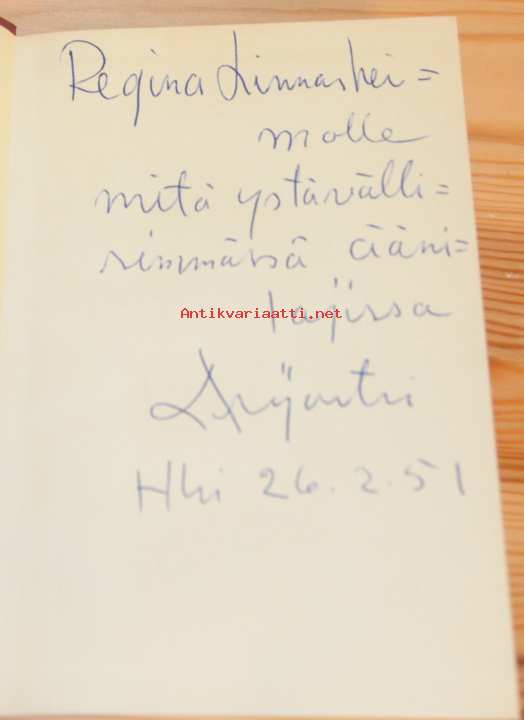 Regina Linnanhei=
molle
mitä ystävälli=
simmässä ääni=
lajissa
Antikvariaatti.net
Hki 26.2.51